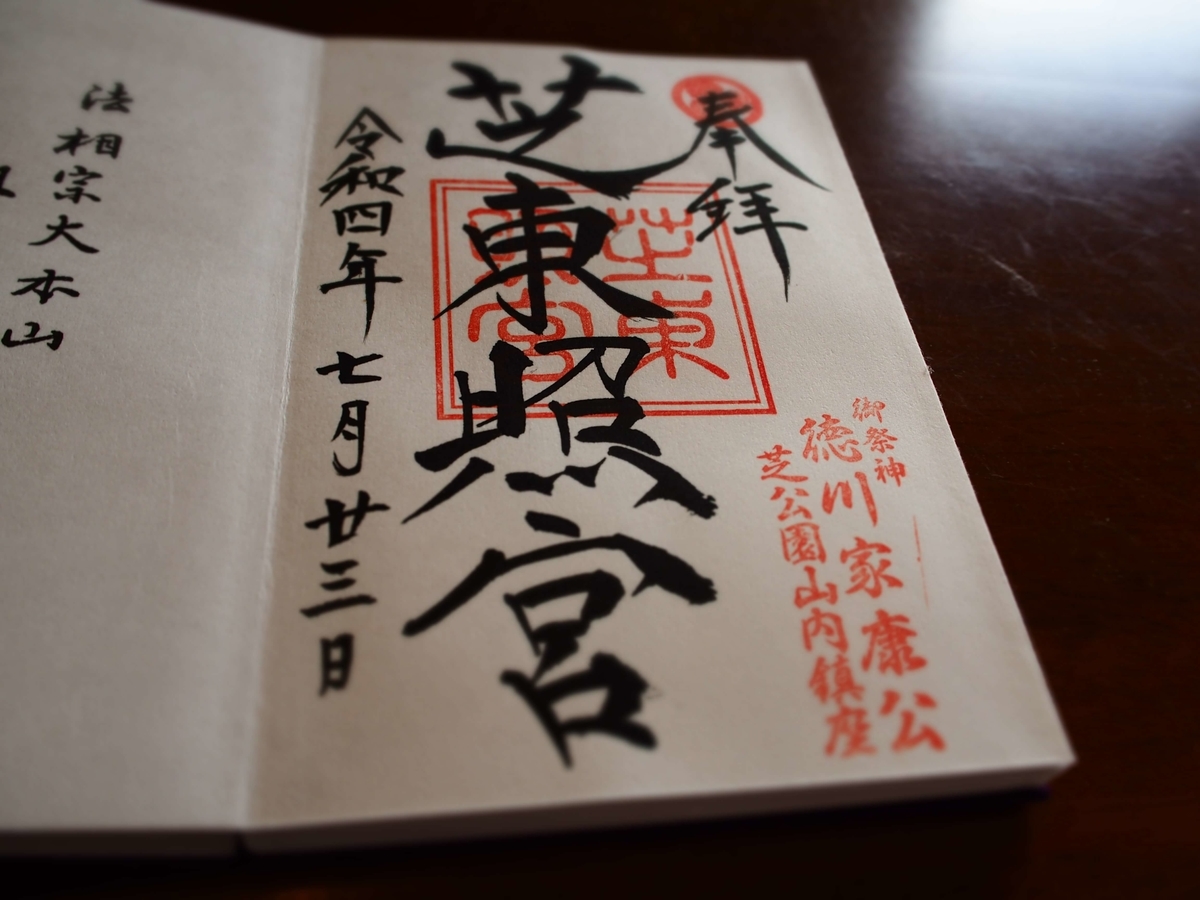 奉拝
芝東照宮
令和四年七月廿三日
芝東
照宮
御祭神
徳川家康公
芝公園山内鎮座
法相宗大本山